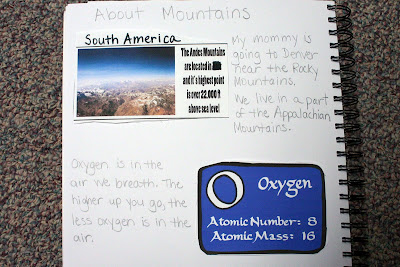 About Mountains
South America
The Andes Mountains
are located in
and it's highest point
is over 22,000 ft
above sea level
My mommy is
going to Denver
near the Rocky
Mountains.
We live in a part
of the Appalachian
Mountains.
Oxygen is in the
air we breath. The
higher up you go, the
less oxygen is in the
air.
O
Oxygen
Atomic Number: 8
Atomic Mass: 16